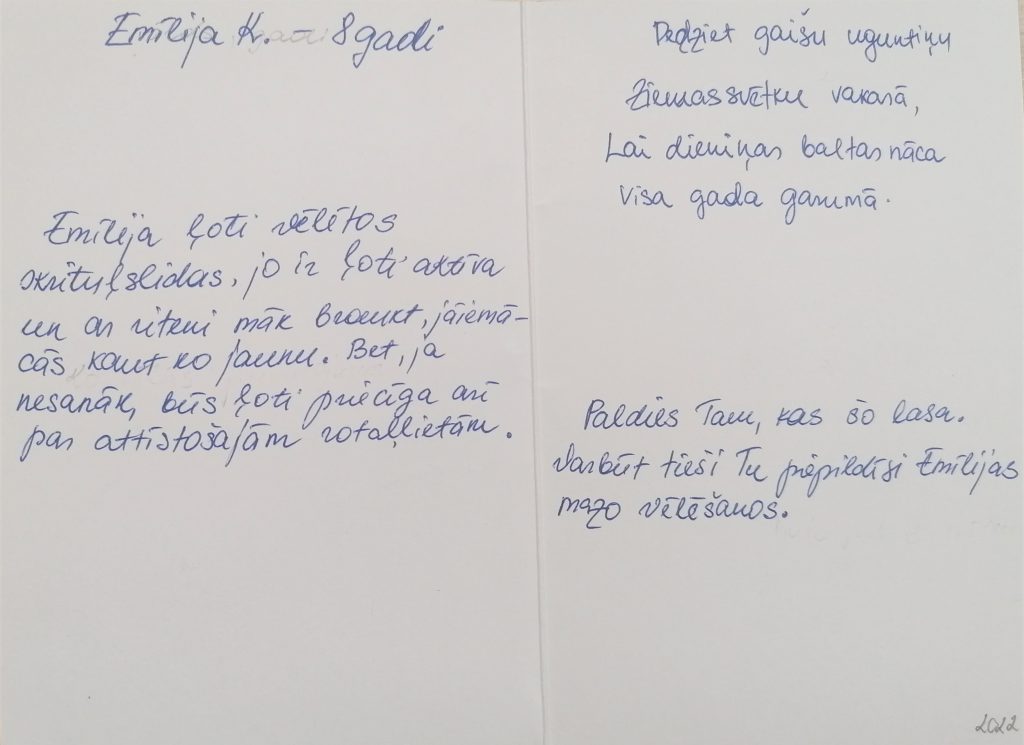 Emīlija K. - 8 gadi
Emīlija ļoti vēlētos
skrituļslidas, jo ir ļoti aktīva
un ar riteni māk braukt, jāiemā-
cās kaut ko jaunu. Bet, ja
nesanāk, būs ļoti priecīga arī
par attīstošajām rotaļlietām.
Dedziet gaišu uguntiņu
Ziemassvētku vakarā,
Lai dieniņas baltas nāca
Visa gada garumā.
Paldies Tam, kas šo lasa.
Varbūt tieši Tu piepildīsi Emīlijas
mazo vēlēšanos.
2022